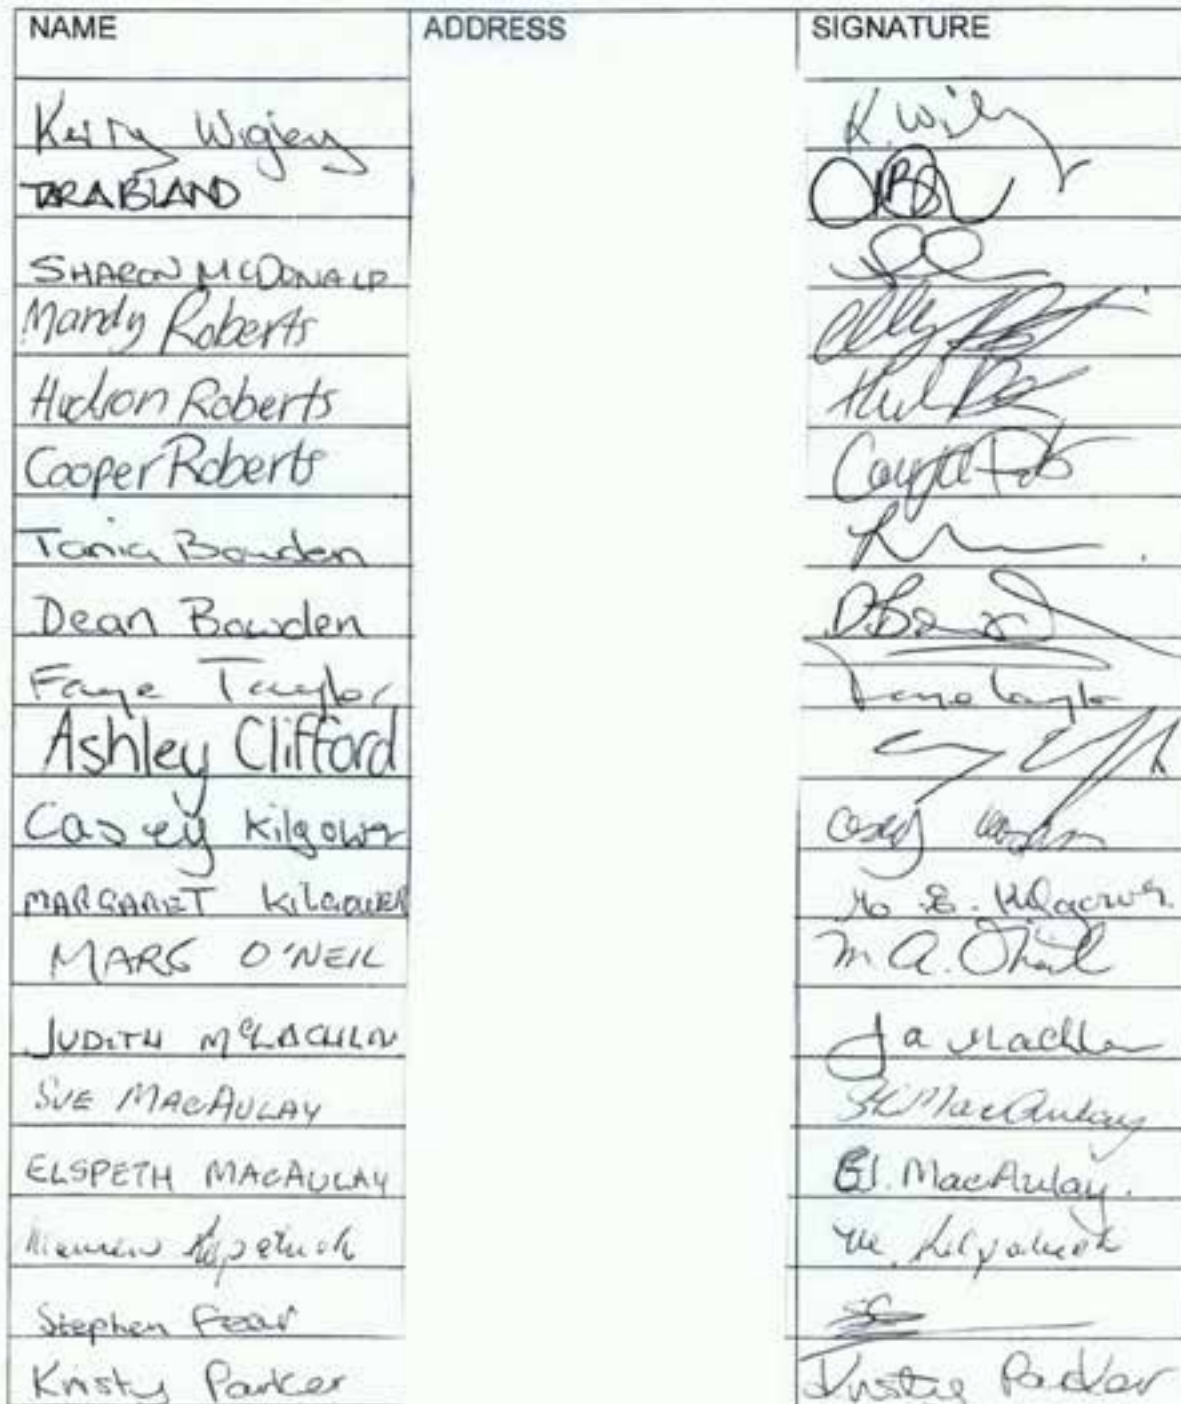 NAME ADDRESS SIGNATURE
Kerry Wigley K. Wigley
TARA BLAND
SHARON MCDONALD
Mandy Roberts
Hudson Roberts
Cooper Roberts
Tania Bowden
Dean Bowden
Faye Taylor Faye Taylor
Ashley Clifford
Casey Kilgower Casey
MARGARET KILGOWER M. E. Kilgower.
MARG O'NEIL M. A. O'Neil
JUDITH MCLACHLIN J a
SUE MACAULAY MacAulay
ELSPETH MACAULAY E.J. MacAulay.
Kilpatrick M. Kilpatrick
Stephen Fear
Kristy Parker Kristy Parker